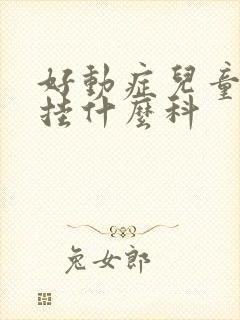 好動症兒童
挂什麼科
兔女郎